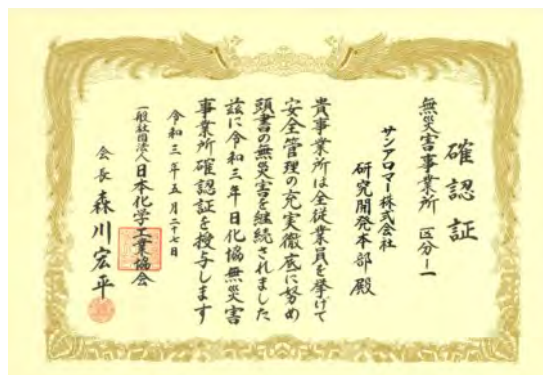 確認証
無災害事業所 区分ー一
サンアロマー株式会社
研究開発本部殿
貴事業所は全従業員を挙げて
安全管理の充実徹底に努め
頭書の無災害を継続されました
茲に令和三年日化協無災害
事業所確認証を授与します
令和三年五月二十七日
一般社団法人日本化学工業協会
会長 森川宏平